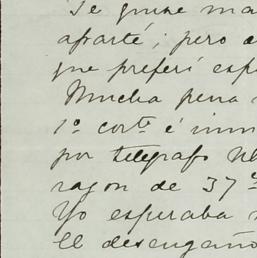 Se quise ma
aparté; pero a
que preferí esp
Mucha pena
1º corte é inm
por telégrafo Ul
razon de 37
Yo esperaba
el desengaño